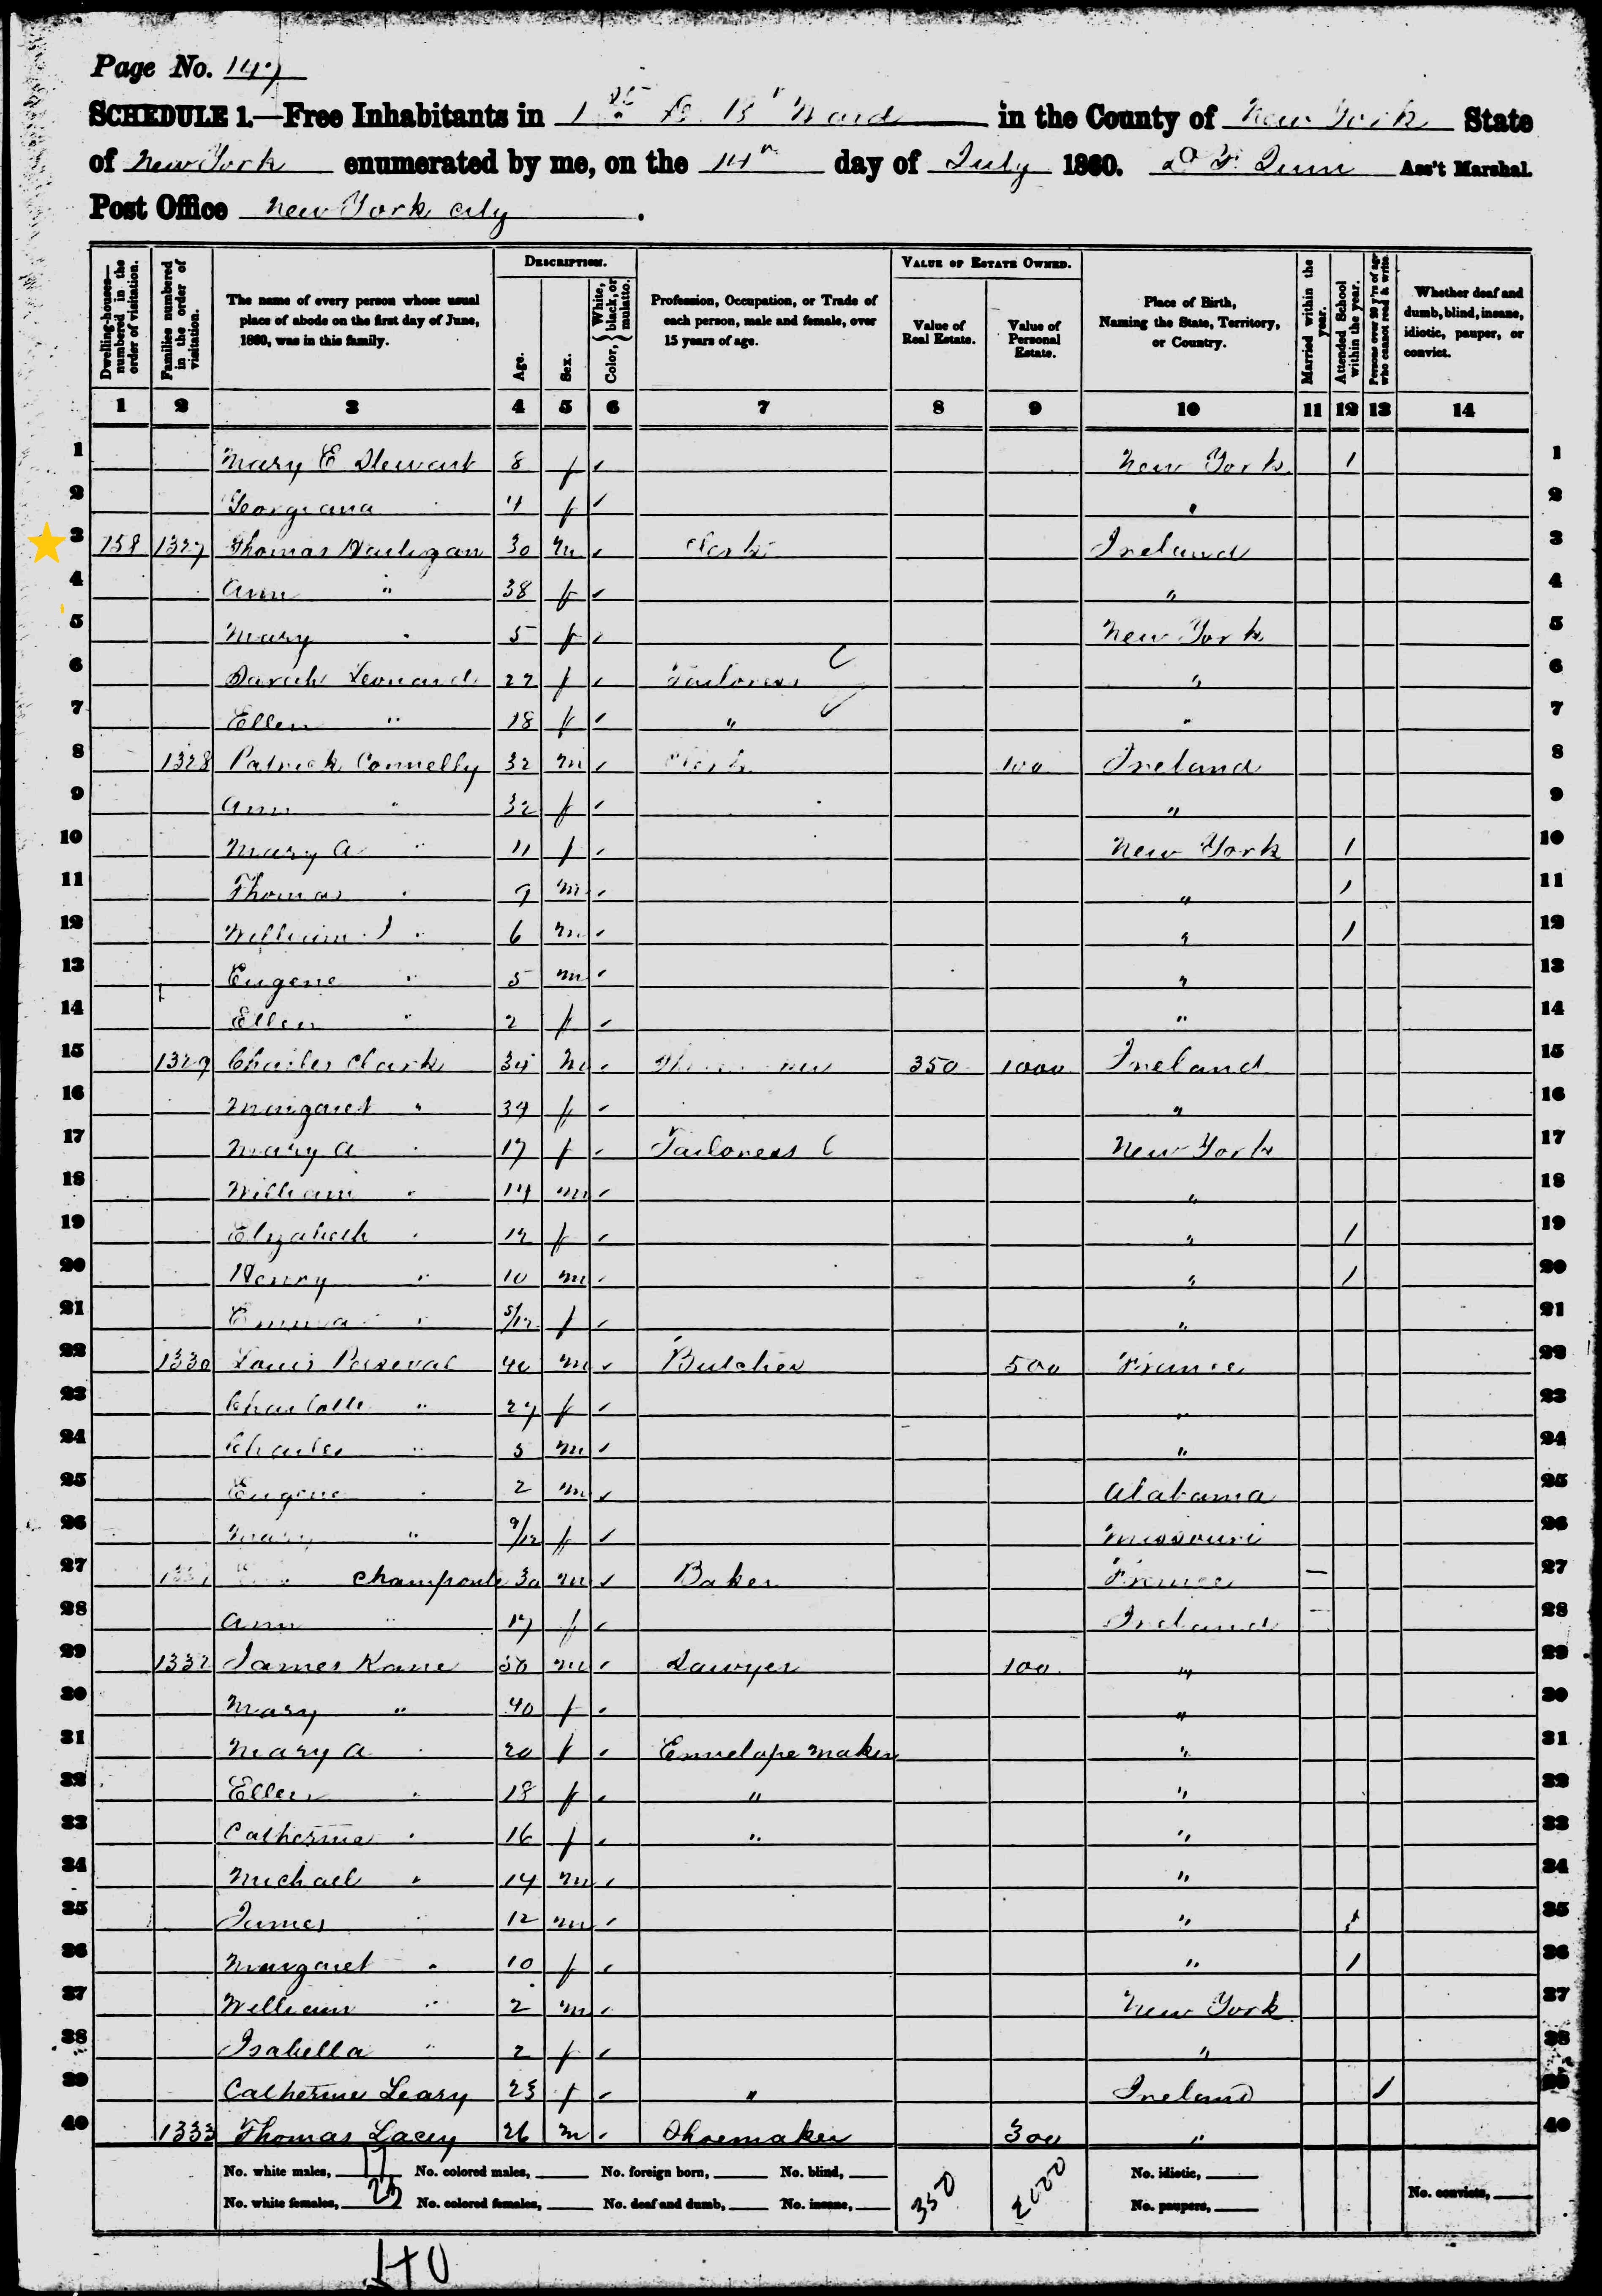 Page No. 147
SCHEDULE 1.—Free Inhabitants in 1st D. 13" Ward in the County of New York State
of New York enumerated by me, on the 14" day of July 1860. Ass't Marshal.
Post Office New York city.
Dwelling-houses—numbered in the order of visitation.
Families numbered in the order of visitation.
The name of every person whose usual place of abode on the first day of June, 1860, was in this family.
DESCRIPTION.
Age.
Sex.
Color, { White, black, or mulatto.
Profession, Occupation, or Trade of each person, male and female, over 15 years of age.
VALUE OF ESTATE OWNED.
Value of Real Estate.
Value of Personal Estate.
Place of Birth, Naming the State, Territory, or Country.
Married within the year.
Attended School within the year.
Persons over 20 y'rs of age who cannot read & write.
Whether deaf and dumb, blind, insane, idiotic, pauper, or convict.
1 2 3 4 5 6 7 8 9 10 11 12 13 14
1 Mary E Stewart 8 f ✓ New York 1 1
2 Georgiana 4 f ✓ " 2
3 158 1327 Thomas Hartigan 30 m ✓ Clerk Ireland 3
4 Ann " 38 f ✓ " 4
5 Mary " 5 f ✓ New York 5
6 Sarah Leonard 22 f ✓ Tailoress " 6
7 Ellen " 18 f ✓ " " 7
8 1328 Patrick Connelly 32 m ✓ Clerk 100 Ireland 8
9 Ann " 32 f ✓ " 9
10 Mary A " 11 f ✓ New York 1 10
11 Thomas " 9 m ✓ " 1 11
12 William J " 6 m ✓ " 1 12
13 Eugene " 5 m ✓ " 13
14 Ellen " 2 f ✓ " 14
15 1329 Charles Clark 34 m ✓ 350 1000 Ireland 15
16 Margaret " 34 f ✓ " 16
17 Mary A " 17 f ✓ Tailoress New York 17
18 William " 14 m ✓ " 18
19 Elizabeth " 12 f ✓ " 1 19
20 Henry " 10 m ✓ " 1 20
21 Emma " 5/12 f ✓ " 21
22 1330 Louis Perseval 40 m ✓ Butcher 500 France 22
23 Charlotte " 27 f ✓ " 23
24 Charles " 5 m ✓ " 24
25 Eugene " 2 m ✓ Alabama 25
26 Mary " 9/12 f ✓ Missouri 26
27 1331 Champonte 30 m ✓ Baker France — 27
28 Ann " 17 f ✓ Ireland — 28
29 1332 James Kane 50 m ✓ Lawyer 100 " 29
30 Mary " 40 f ✓ " 30
31 Mary A " 20 f ✓ Envelope maker " 31
32 Ellen " 18 f ✓ " " 32
33 Catherine " 16 f ✓ " " 33
34 Michael " 14 m ✓ " 34
35 James " 12 m ✓ " 1 35
36 Margaret " 10 f ✓ " 1 36
37 William " 2 m ✓ New York 37
38 Isabella " 2 f ✓ " 38
39 Catherine Leary 25 f ✓ " Ireland 1 39
40 1333 Thomas Lacey 26 m ✓ Shoemaker 300 " 40
No. white males, 17 No. colored males, No. foreign born, No. blind, No. idiotic,
No. white females, 23 No. colored females, No. deaf and dumb, No. insane, 350 2000 No. paupers, No. convicts,
40